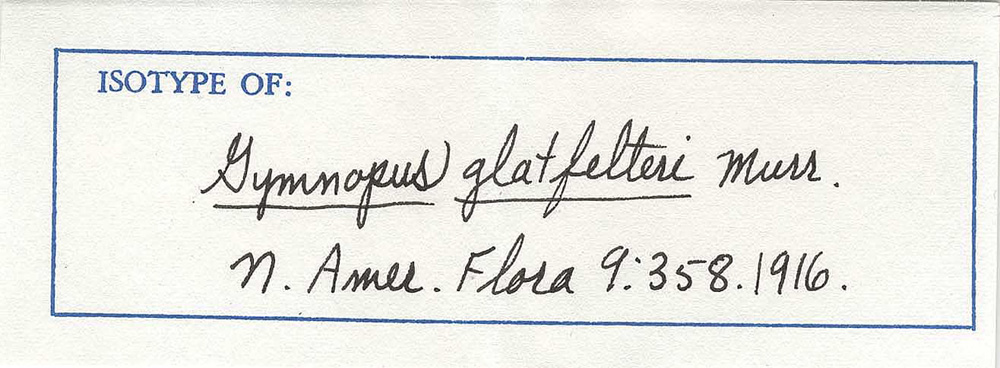 ISOTYPE OF:
Gymnopus glatfelteri Murr.
N. Amer. Flora 9:358.1916.